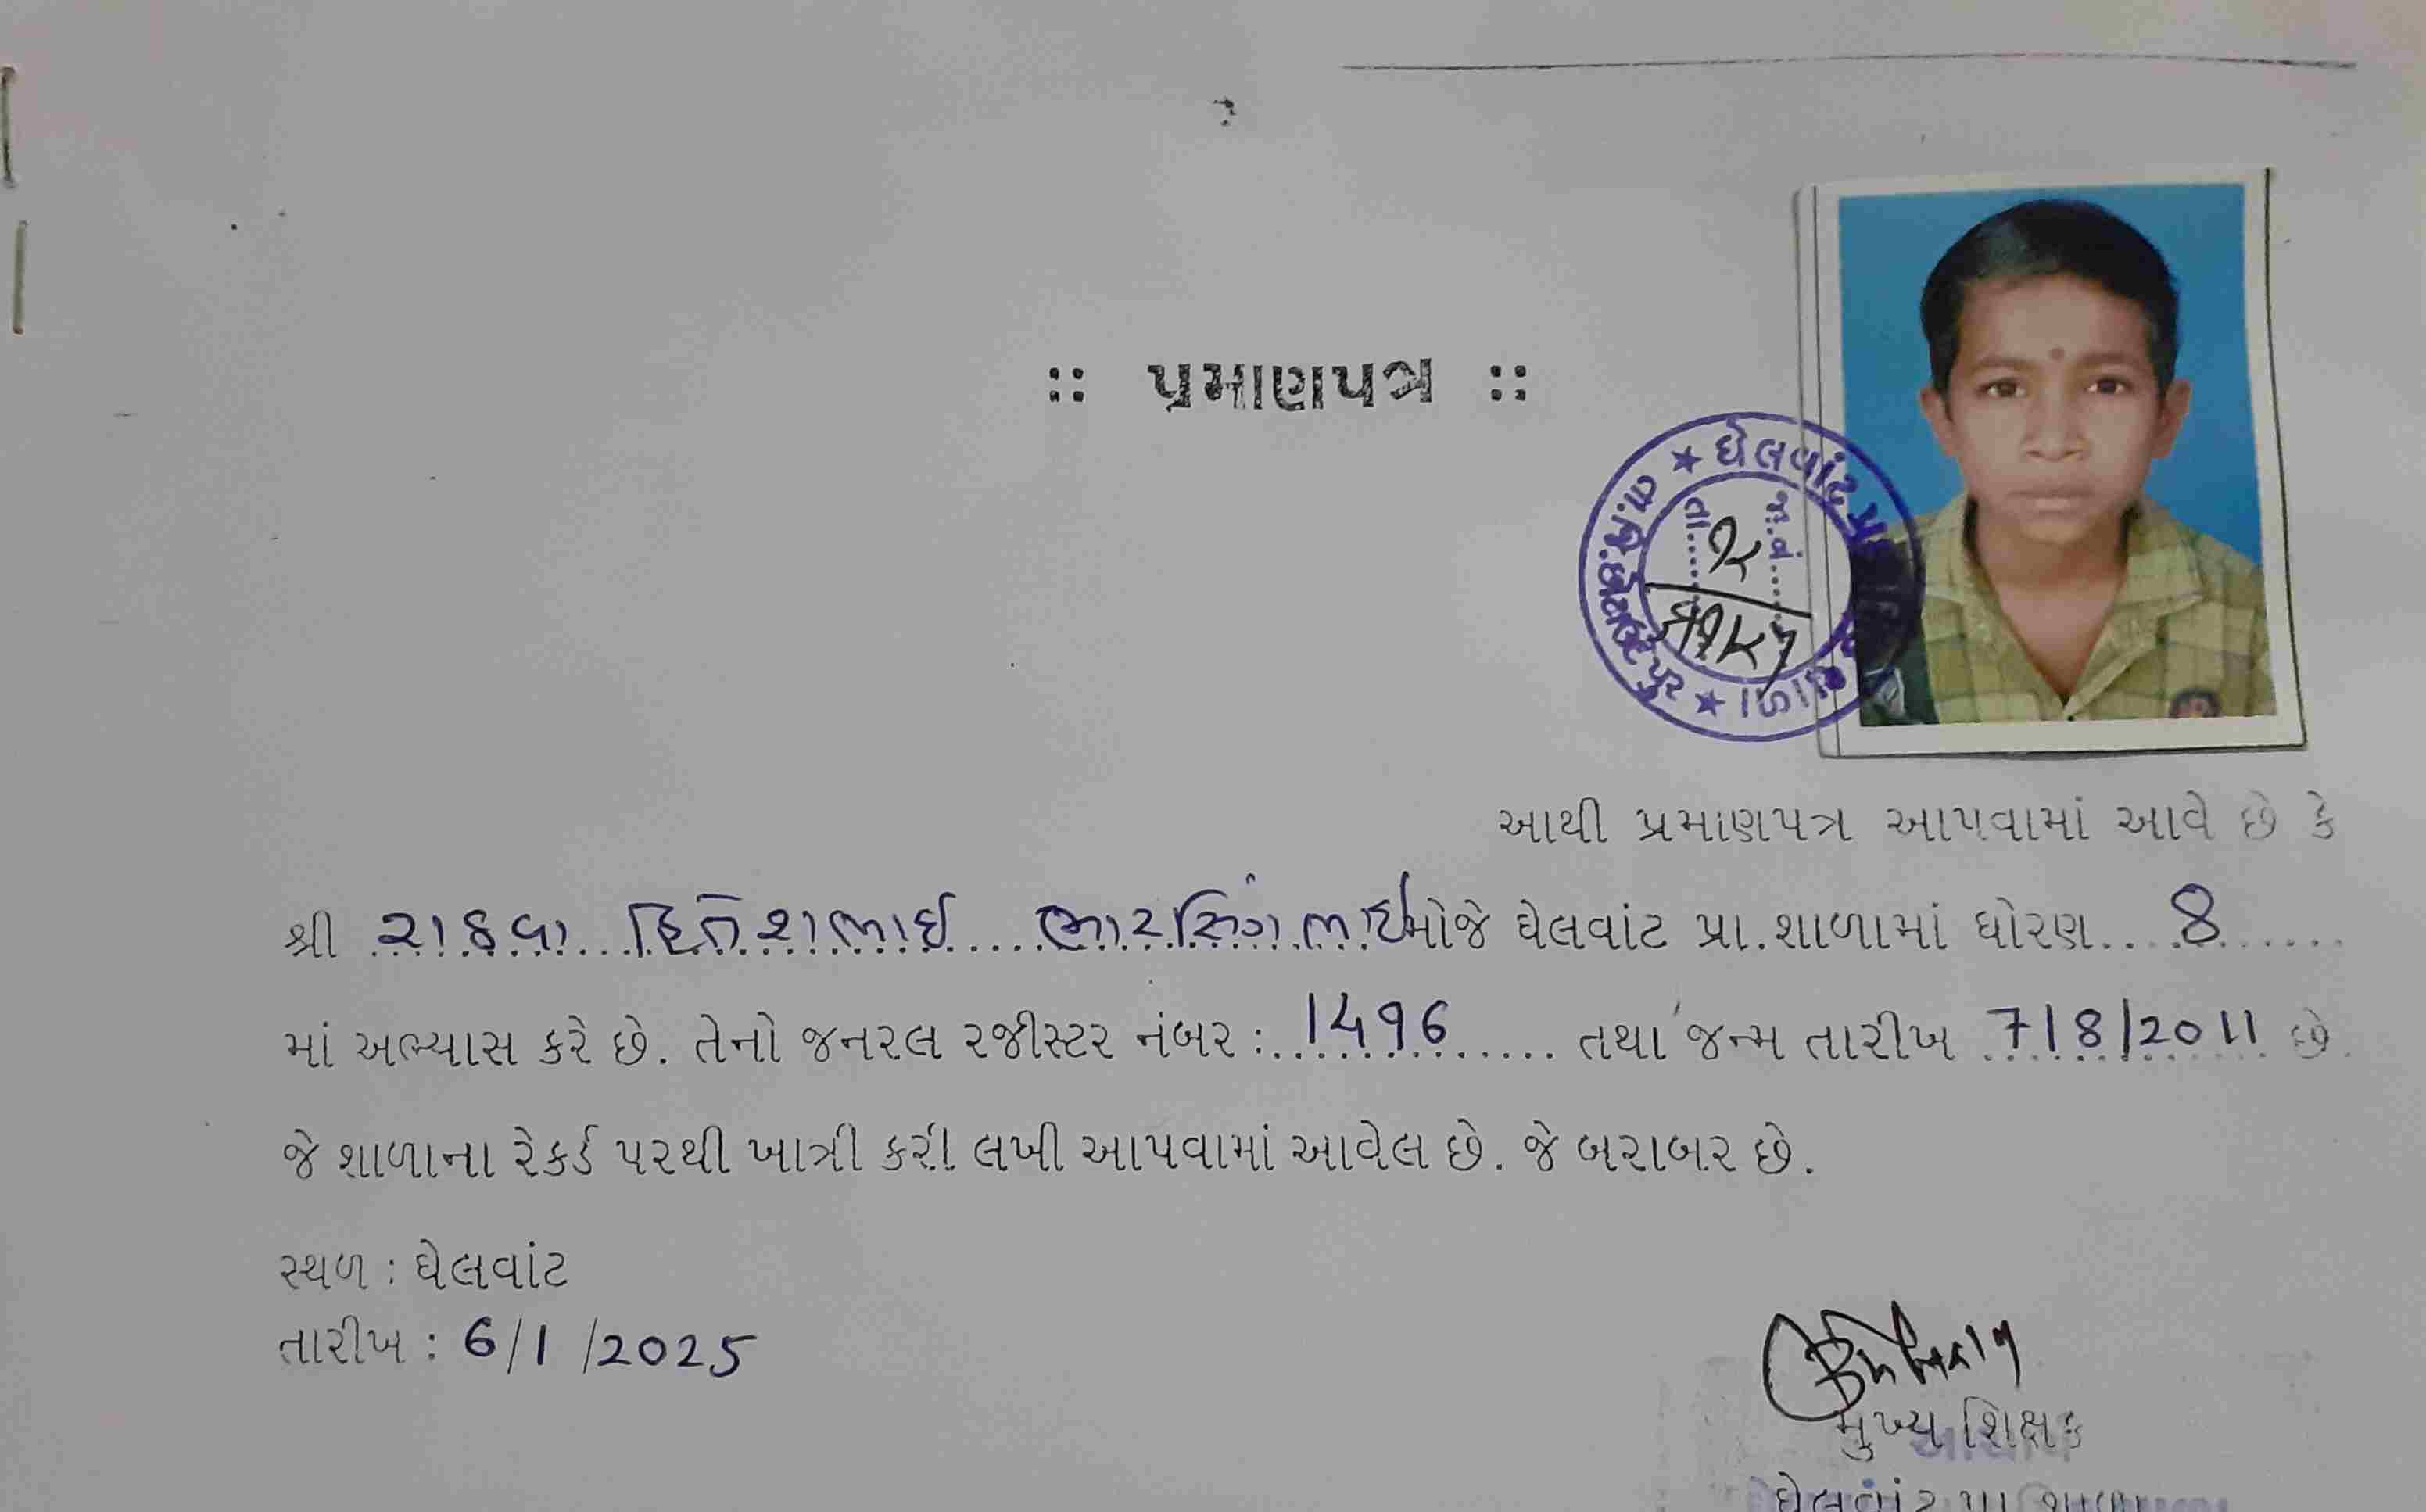 :: પ્રમાણપત્ર ::
★ ઘેલવાંટ પ્રા. શાળા ★ તા.જિ.છોટાઉદેપુર
જા.નં......
તા......
આથી પ્રમાણપત્ર આપવામાં આવે છે કે
શ્રી રાઠવા હિતેશભાઈ ભારસિંગભાઈ મોજે ઘેલવાંટ પ્રા.શાળામાં ધોરણ....8......
માં અભ્યાસ કરે છે. તેનો જનરલ રજીસ્ટર નંબર :..1496...... તથા જન્મ તારીખ 7/8/2011 છે.
જે શાળાના રેકર્ડ પરથી ખાત્રી કરી લખી આપવામાં આવેલ છે. જે બરાબર છે.
સ્થળ : ઘેલવાંટ
તારીખ : 6/1/2025
મુખ્ય શિક્ષક
ઘેલવાંટ પ્રા શાળા